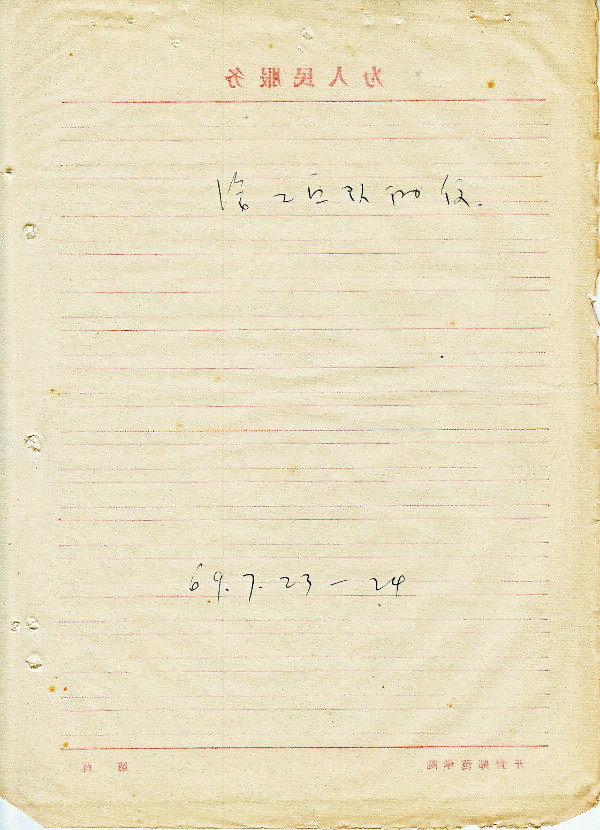 为人民服务
给工宣队的信.
69.7.23—24
开封师范学院